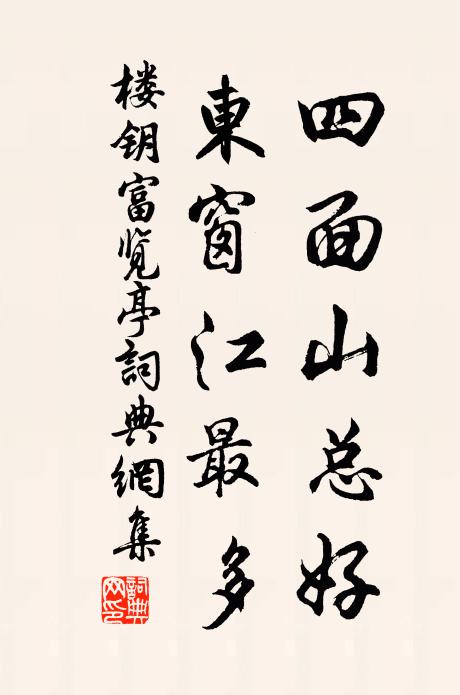 四面山总好
東窗江最多
楼钥富览亭詞典網集
詞典网印